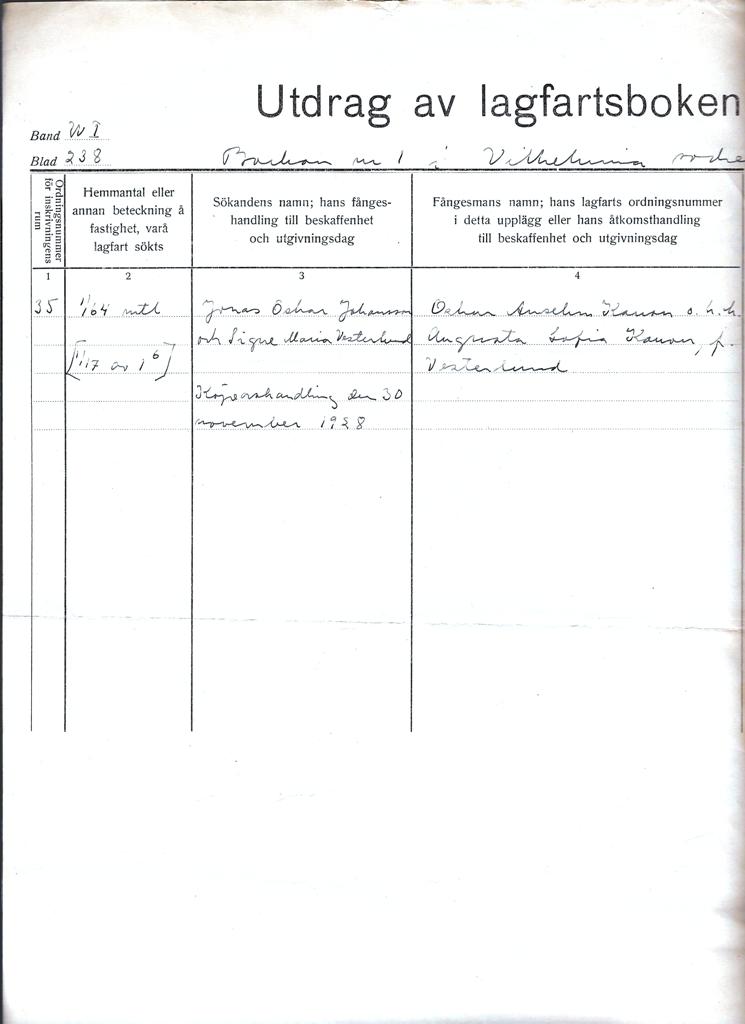 Utdrag av lagfartsboken
Band W I
Blad 238
nr 1 i Vilhelmina södre
Ordningsnummer
för inskrivningens
rum
Hemmantal eller
annan beteckning å
fastighet, varå
lagfart sökts
Sökandens namn; hans fånges-
handling till beskaffenhet
och utgivningsdag
Fångesmans namn; hans lagfarts ordningsnummer
i detta upplägg eller hans åtkomsthandling
till beskaffenhet och utgivningsdag
1
2
3
4
35
1/64 mtl
[1/17 av 1⁶]
Jonas Oskar Johansson
och Signe Maria Vesterlund
Köpeavhandling den 30
november 1928
Oskar Anselm o. h. h.
Augusta Sofia f.
Vesterlund